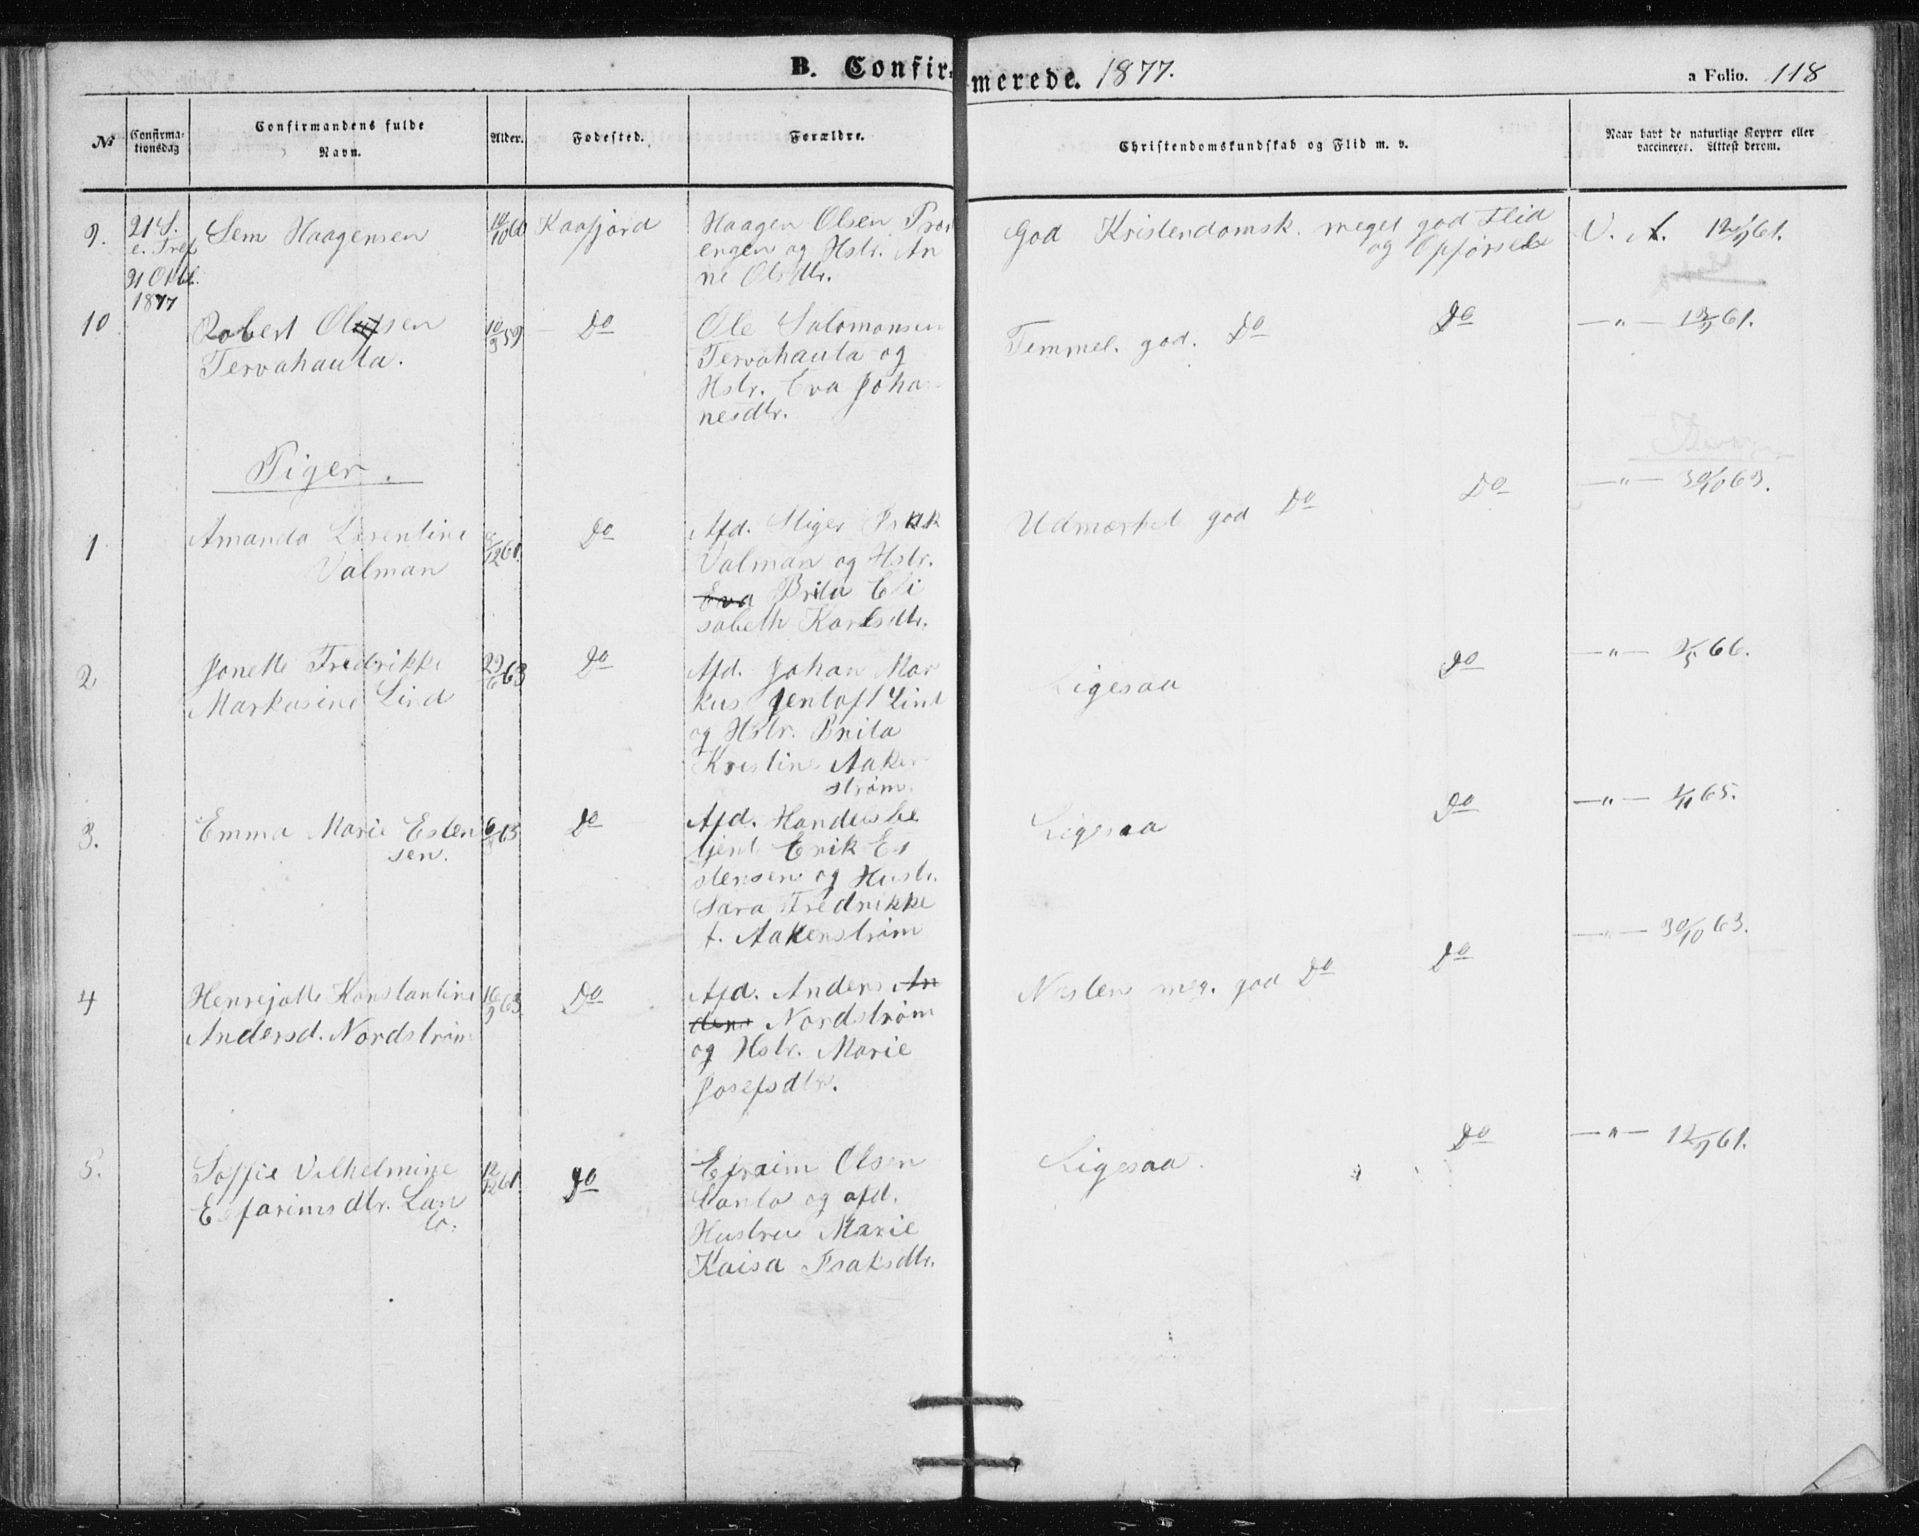 B. Confirmerede. 1877.
a Folio. 118
No
Confirmationsdag
Confirmandens fulde Navn.
Alder.
Fødested.
Forældre.
Christendomskundskab og Flid m. v.
Naar havt de naturlige Kopper eller vaccineret. Attest derom.
9.
21 S.
e. Tref.
21 Oktb.
1877
Sem Haagensen
14/10 60
Kaafjord
Haagen Olsen
engen og Hstr. An
ne Olsdtr.
God Kristendomsk. meget god Flid
og Opførsel
V. A. 12/9 61.
10
Robert Olsen
Tervahauta.
10/3 59
Do
Ole Salomonsen
Tervahauta og
Hstr. Eva Joha
nesdtr.
Temmel. god. Do Do
—"— 12/9 61.
Piger.
1
Amanda Lorentine
Valman
8/12 61.
Do
Afd. Stiger Isak
Valman og Hstr.
Eva Brita Eli
sabeth Karlsdtr.
Udmærket god Do Do
—"— 30/10 63.
2
Jonette Fredrikke
Markusine Lind
29/6 63
Do
Afd. Johan Mar
kus Jentoft Lind
og Hstr. Brita
Kristine Aaker
strøm.
Ligesaa Do
—"— 2/5 66.
3.
Emma Marie Esten
sen.
63
Do
Afd. Handelsbe
tjent Erik Es
stensen og Hustr.
Sara Fredrikke
f. Aakerstrøm
Ligesaa Do
—"— 1/11 65.
4
Henrejotte Konstantine
Andersd. Nordstrøm
16/9 63.
Do
Afd. Anders An
ders Nordstrøm
og Hstr. Marie
Josefsdtr.
Næsten meg. god Do Do
—"— 30/10 63.
5.
Soffie Vilhelmine
Eefarimsdtr. Lan
to.
12/12 61.
Do
Efraim Olsen
Lanto og afd.
Hustru Marie
Kaisa Isaksdtr.
Ligesaa. Do
—"— 12/9 61.